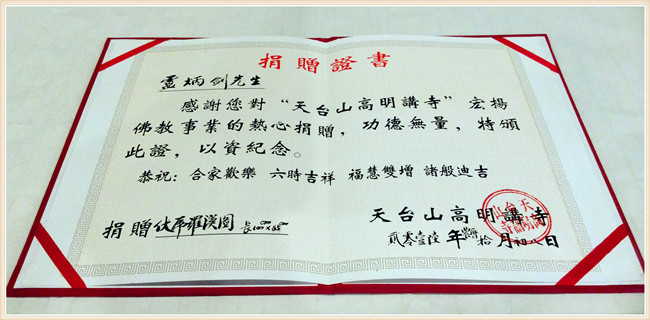 捐贈證書
炳剑先生
感謝您對“天台山高明講寺”宏揚
佛教事業的熱心捐贈，功德無量，特頒
此證，以資紀念。
恭祝：合家歡樂 六時吉祥 福慧雙增 諸般迪吉
捐贈伏虎羅漢圖
天台山高明講寺
貳零壹陸年拾月初八日